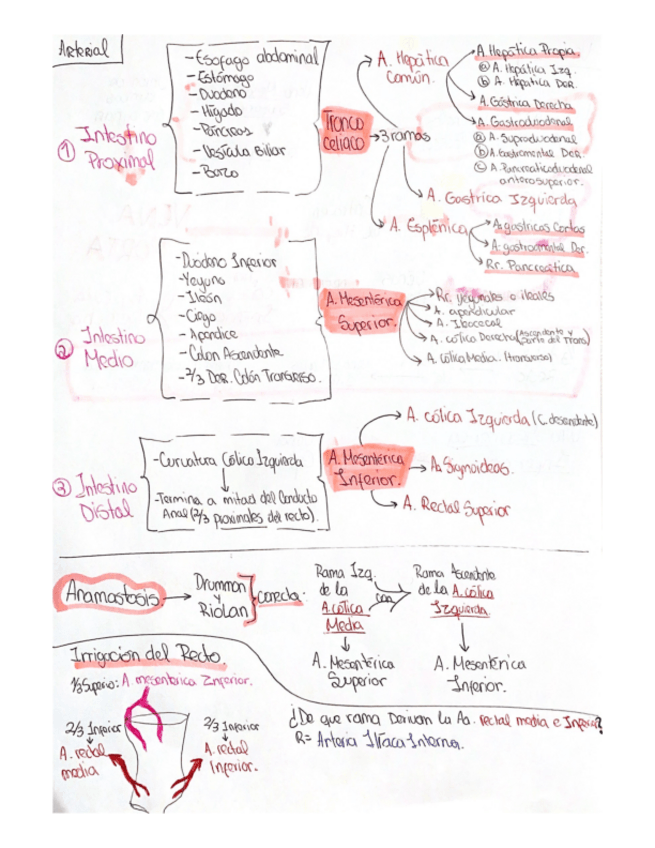 Arterial
① Intestino Proximal
- Esofago abdominal
- Estómago
- Duodeno
- Hígado
- Páncreas
- Vesícula Biliar
- Bazo
Tronco celiaco → 3 ramas
A. Hepática Común.
A. Hepática Propia
ⓐ A. Hepática Izq.
ⓑ A. Hepática Der.
A. Gástrica Derecha
A. Gastroduodenal
ⓐ A. Supraduodenal
ⓑ A. Gastromental Der.
ⓒ A. Pancreaticoduodenal anterosuperior.
A. Gastrica Izquierda
A. Esplénica
A. gastricas Cortas
A. gastromental Der.
Rr. Pancreática
② Intestino Medio
- Duodeno Inferior
- Yeyuno
- Ileón
- Ciego
- Apendice
- Colon Ascendente
- 2/3 Der. Colón Transverso.
A. Mesentérica Superior.
Rr. yeyunales e ileales
A. apendicular
A. Ileocecal
A. cólica Derecha (Ascendente y parte del Trans)
A. cólica Media. (transverso)
③ Intestino Distal
- Curvatura Cólica Izquierda
- Termina a mitad del Conducto Anal (2/3 proximales del recto).
A. Mesentérica Inferior.
A. cólica Izquierda (C. desendente)
As Sigmoideas.
A. Rectal Superior
Anamastosis. →
Drummon y Riolan
conecta.
Rama Izq. de la A. cólica Media
con
Rama Ascendente de la A. cólica Izquierda
A. Mesentérica Superior
A. Mesentérica Inferior.
Irrigación del Recto.
1/3 Superio: A mesenterica Inferior.
2/3 Inferior
A. rectal media
2/3 Inferior
A. rectal Inferior.
¿De que rama Derivan la As. rectal media e Inferior?
R= Arteria Iliaca Interna.